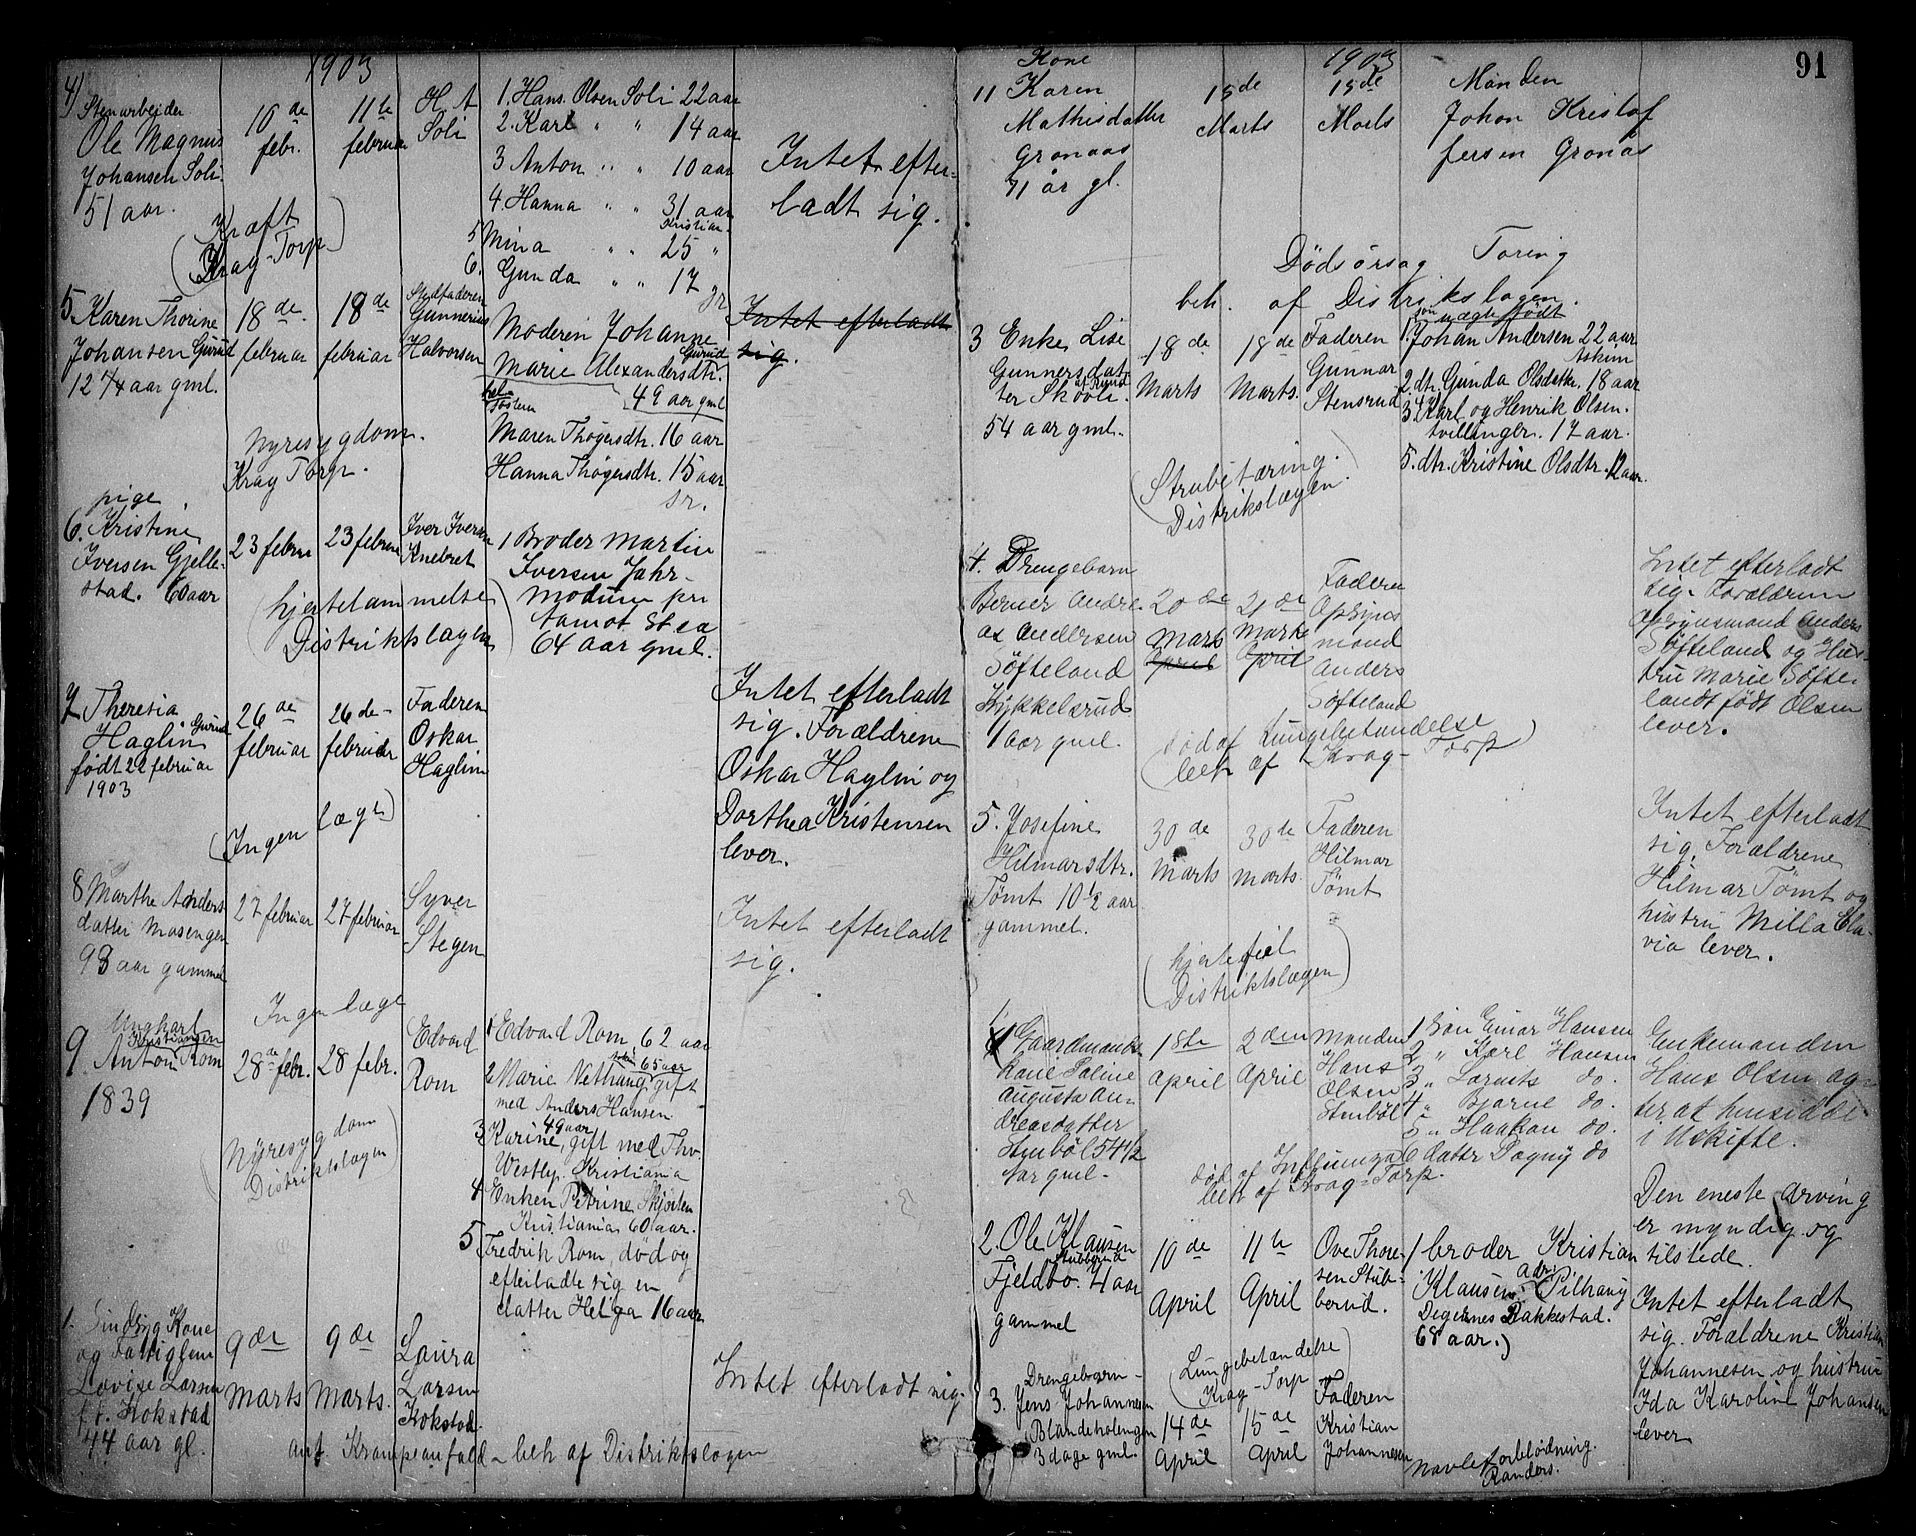 1903
4) Stenarbeider
Ole Magnus
Johansen Soli.
51 aar.
10 de
febr.
11te
februar
H. A
Soli
1. Hans Olsen Soli 22 aar
2. Karl " " 14 aar
3 Anton " " 10 aar
4. Hanna " " 31 aar
Kristian-
5 Mina " " 25 "
6. Gunda " " 17
Intet efter-
ladt sig.
Kræft
(Krag-Torp)
5. Karen Thorine
Johansen Gurud
12 3/4 aar gml.
18 de
februar
18 de
februar
Stedfaderen
Gunnerius
Halvorsen
Moderen Johanne
Marie Alexandersdtr. Gurud
49 aar gml
hel
søstern
Maren Thøgersdtr. 16 aar
Hanna Thøgersdtr. 15 aar
Intet efterladt
sig.
Nyresygdom.
Krag Torp.
pige
6. Kristine
Iversen Gjelle-
stad. 60 aar
23 februar
23 februar
Iver Iversen
Knebret
1 Broder Martin
Iversen Jahr-
Modum pr
64 aar gml.
(hjertelammelse
Distriktslægen)
7 Theresia
Haglin Gurud
født 22 februar
1903
26 de
februar
26 de-
februar
Faderen
Oskar
Haglin
Intet efterladt
sig. Forældrene
Oskar Haglin og
Dorthea Kristensen
lever.
(Ingen læge)
8 Marthe Anders
datter Mosengen
93 aar gammel
27 februar
27 februar
Syver
Stegen
Intet efterladt
sig.
Ingen læge
Ungkarl
Kristiansen
9 Anton Rom
1839
28 de febr.
28 febr.
Edvard
Rom
1 Edvard Rom 62 aar
2 Marie Nethaug 65 aar gift
med Anders Hansen
49 aar
3 Karine, gift med Thv.
Westby. Kristiania
4 Enken Petrine Skjørten
Kristiania 60 aar.
5 Fredrik Rom, død og
efterladte sig en
datter Helga 16 aar
(Nyresygdom
Distriktslægen)
1. Kone
og Fattiglem
Lovise Larsen
f. f. Kokstad
44 aar gl.
9 de
Marts
9 de
Marts.
Laura
Larsen
Kokstad.
Intet efterladt sig.
ant. Krampeanfald - beh af Distriktslægen
91
1903
Kone
11 Karen
Mathisdatter
Grønaas
71 år gl.
15 de
Marts
15 de
Marts
Manden
Johan Kristof
fersen Grønås
Dødsårsag Tæring
beh. af Distrikslægen.
3 Enke Lise
Gunnersdat-
ter Skovli af Ruud
54 aar gml.
18 de
Marts
18 de
Marts.
Faderen
Gunnar
Stensrud
søn uægtefødt
1. Johan Andersen 22 aar
Askim
2. dtr. Gunda Olsdatter. 18 aar
3. 4 Karl og Henrik Olsen.
tvillinger. 17 aar.
5. dtr. Kristine Olsdtr. 12 aar.
(Strubetæring.
Distrikslægen.)
4. Drengebarn
Berner Andre-
as Andersen
Søfteland
Kykkelsrud
1 aar gml.
20 de
Marts
April
21 de
Marts
April
Faderen
Opsyns
mand
Anders
Søfteland
Intet efterladt
sig. Forældrene
Opsynsmand Anders
Søfteland og Hus-
tru Marie Søfte-
landt født Olsen
lever.
(død af Lungebetændelse
beh af Krag-Torp)
5. Josefine
Hilmarsdtr.
Tømt 10 1/2 aar
gammel.
30 de
Marts
30 de
Marts.
Faderen
Hilmar
Tømt
Intet efterladt
sig. Forældrene
Hilmar Tømt og
hustru Milla Ola-
via lever.
(hjertefeil
Distriktslægen)
1 Gaardmands
kone Paline
Augusta An-
dreasdatter
Stenbøl 54 1/2
Aar gml.
1ste
April
2 den
April
Manden
Hans
Olsen
Stenbøl
1 Søn Einar Hansen
2 " Karl Hansen
3 " Laurits do.
4 " Bjarne do.
5 " Haakon do.
6 datter Dagny do
Enkemanden
Hans Olsen ag-
ter at hensidde
i Uskifte.
død af Influenza
beh af Krag-Torp.
2. Ole Klausen
Stubberud
Fjeldbo. 74 aar
gammel
10 de
April
11 te
April
Ove Thore-
sen Stub-
berud.
1 broder Kristian
Klausen adr. Pilhaug
Degernes Rakkestad.
68 aar.)
Den eneste Arving
er myndig og
tilstede.
(Lungebetændelse
Krag-Torp)
Drengebarn-
3. Jens Johannesen
Blandeholengen
3 dage gml.
14 de
April
15 de
April
Faderen
Kristian
Johannesen
Intet efterladt
sig. Forældrene Kristian
Johannesen og hustru
Ida Karoline Johansen
lever
Navleforblødning.
Randers.